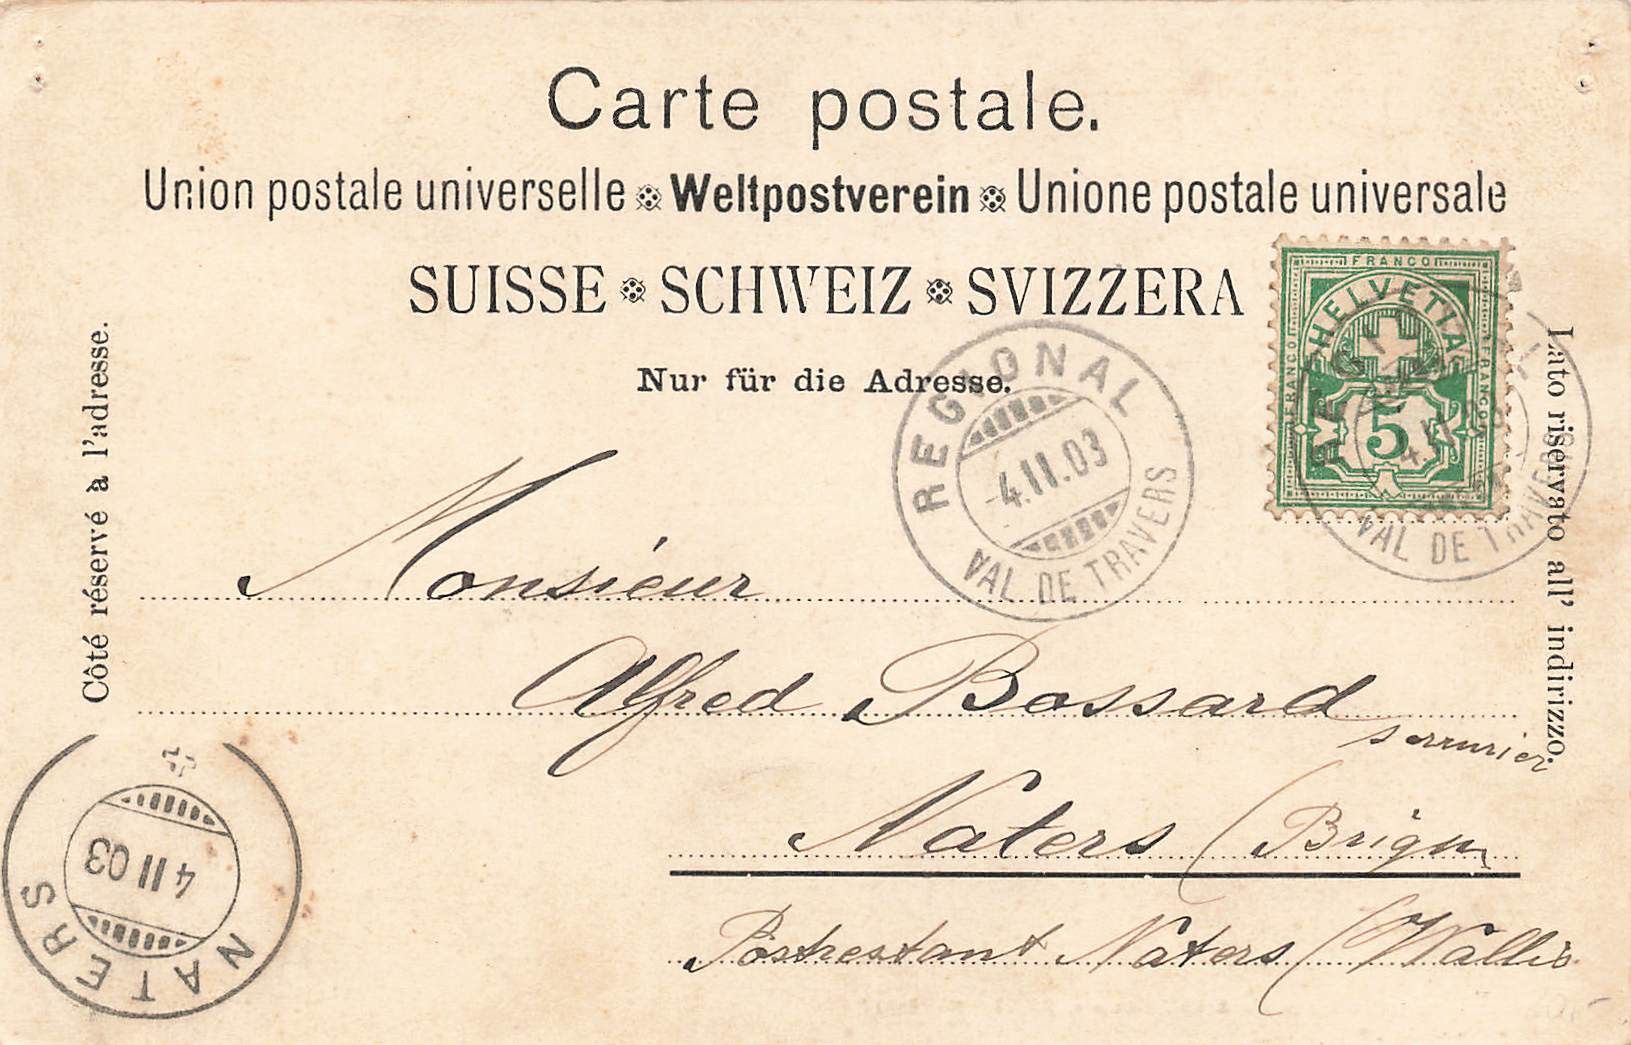 Carte postale.
Union postale universelle Weltpostverein Unione postale universale
SUISSE SCHWEIZ SVIZZERA
Nur für die Adresse.
Côté réservé à l'adresse.
Lato riservato all' indirizzo.
FRANCO
FRANCO
FRANCO
HELVETIA
5
REGIONAL
-4.II.03
VAL DE TRAVERS
VAL DE TRAVERS
Monsieur
Alfred Bossard
serrurier
Naters (Brigue
Postrestant Naters (Wallis
NATERS
4 II 03